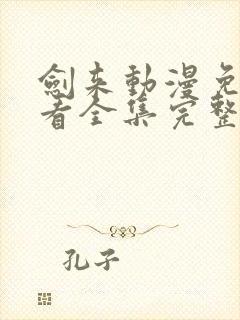 劍来動漫免
看全集完整
孔子